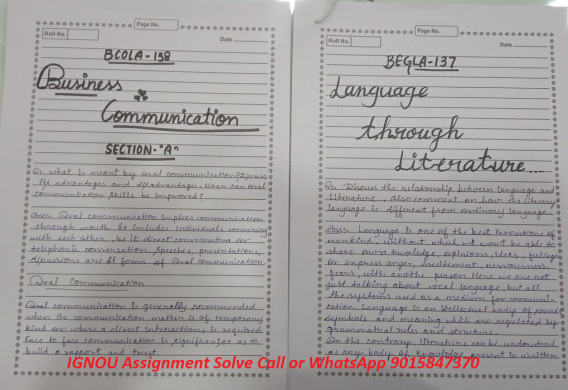 Page No.
Roll No.
Date
BCOLA - 138
Business
Communication
SECTION-"A"
Q1. what is meant by oral communication? Discuss
its advantages and disadvantages. How can oral
communication skills be improved?
Ans: Oral communication implies communication
through mouth. It includes individuals conversing
with each other, be it direct conversation or
telephonic conversation, speeches, presentations,
discussions are all forms of Oral communication.
Oral Communication
Oral communication is generally recommended
when the communication matter is of temporary
kind or where a direct interaction is required.
Face to face communication is significant so as to
build a rapport and trust.
Page No.
Roll No.
Date
BEGLA-137
Language
through
Literature....
Q1. Discuss the relationship between language and
literature, also comment on how the literary
language is different from ordinary language.
Ans: Language is one of the best inventions of
mankind, without which we won't be able to
share our knowledge, opinions, ideas, feelings
or express anger, excitement, nervousness,
fears, with another person. Here we are not
just talking about vocal language, but all
the systems used as a medium for communi-
cation. Language is an intellectual body of sound
symbols and meaning which are regulated by
grammatical rules and structure.
On the contrary, literature can be understood
as any body of knowledge present in written
IGNOU Assignment Solve Call or WhatsApp 9015847370